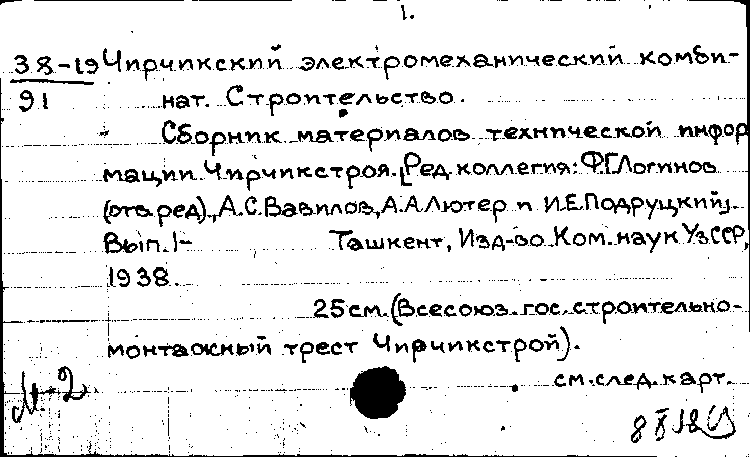 1.
38-19 Чирчикский электромеханический комби-
91 нат. Строительство.
Сборник материалов технической инфор
мации Чирчикстроя. [Ред. коллегия: Ф.Г.Логинов
(отв.ред)., А.С.Вавилов, А.А.Лютер и И.Е.Подруцкий].
Вып. 1- Ташкент, Изд-во Ком. наук УзССР,
1938.
25 см. (Всесоюз. гос. строительно-
монтажный трест Чирчикстрой).
М-2 см. след. карт.